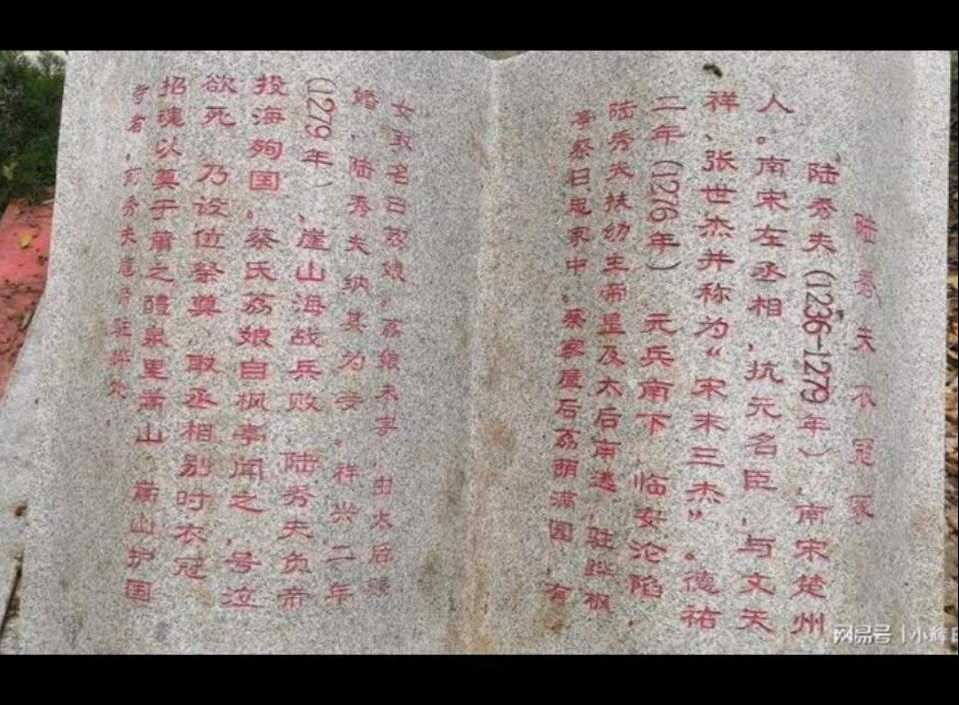 陆秀夫衣冠冢
陆秀夫(1236-1279年)、南宋楚州
人。南宋左丞相,抗元名臣,与文天
祥、张世杰并称为“宋末三杰”。德祐
二年(1276年),元兵南下,临安沦陷
陆秀夫扶幼主帝昰及太后南逃,驻跸枫
亭蔡日忠家中。蔡家屋后荔萌满园,有
女取名曰荔娘。荔娘未字,由太后
婚,陆秀夫纳其为妾。祥兴二年
(1279年),崖山海战兵败,陆秀夫负帝
投海殉国。蔡氏荔娘自枫亭闻之,号泣
欲死,乃设位祭奠,取丞相别时衣冠
招魂以奠于莆之醴泉里嵩山,嵩山护国
寺者,宋驻跸处
网易号|小辉